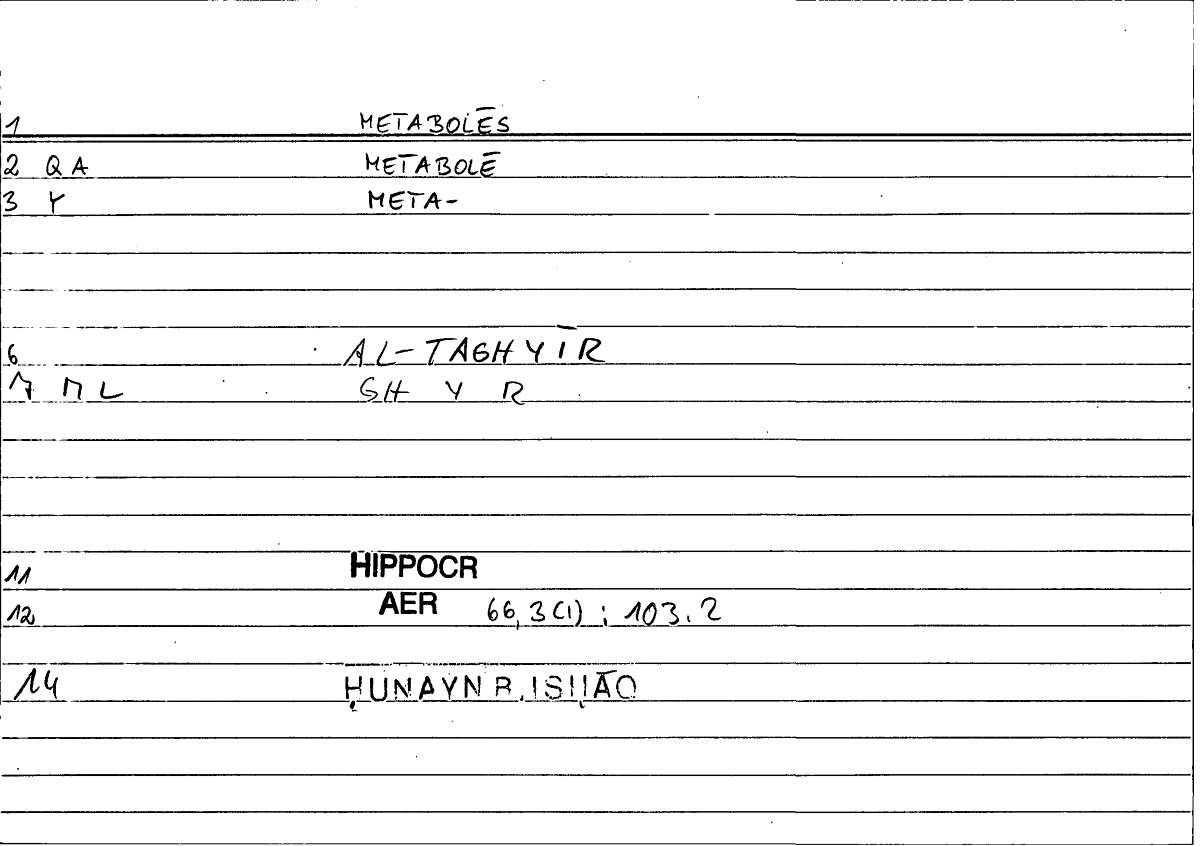 1 METABOLĒS
2 QA METABOLĒ
3 Y META-
6 AL-TAGHYĪR
7 ML GH Y R
11 HIPPOCR
12 AER 66,3(1) ; 103.2
14 ḤUNAYN B. ISḤĀQ